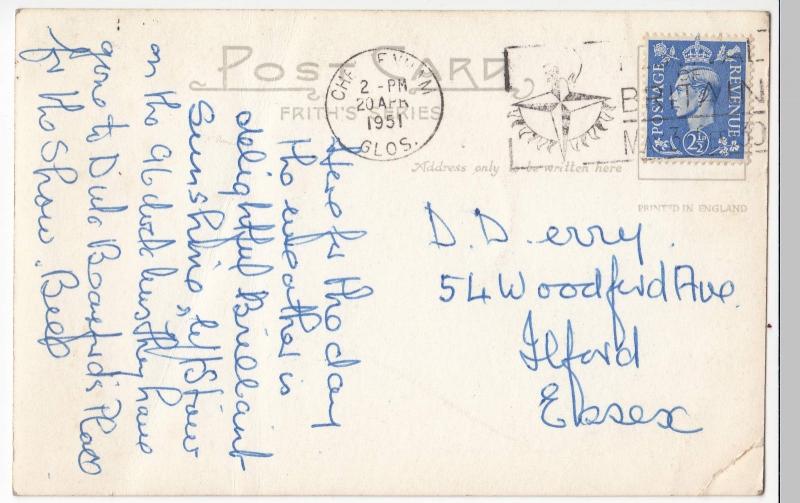 POST CARD
FRITH'S SERIES
CHELTENHAM
2 - PM
20 APR
1951
GLOS.
POSTAGE REVENUE
2½
Address only to be written here
PRINTED IN ENGLAND
Here for the day
the weather is
delightful Brilliant
Sunshine, left Stow
on the 9 o'clock bus, they have
gone to Dula place
for the Show. Beep
D. D. erry.
54 Woodford Ave.
Ilford
Essex